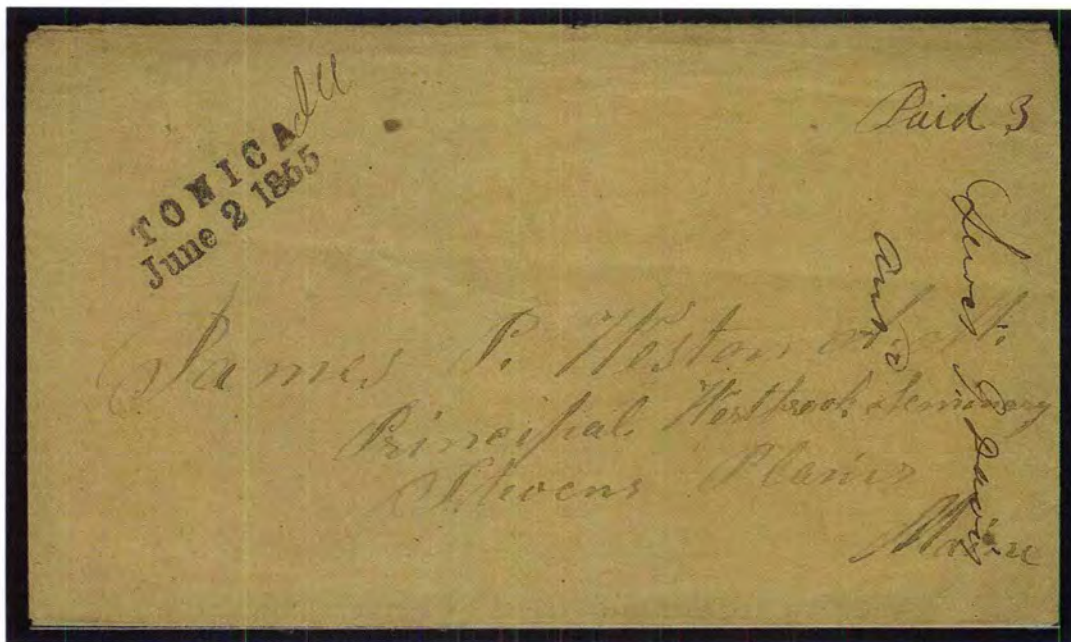 TONICA Ill
June 2 1855
Paid 3
James P. Weston
Principal Westbrook Seminary
Stevens Plains
Maine
Ans
Davis